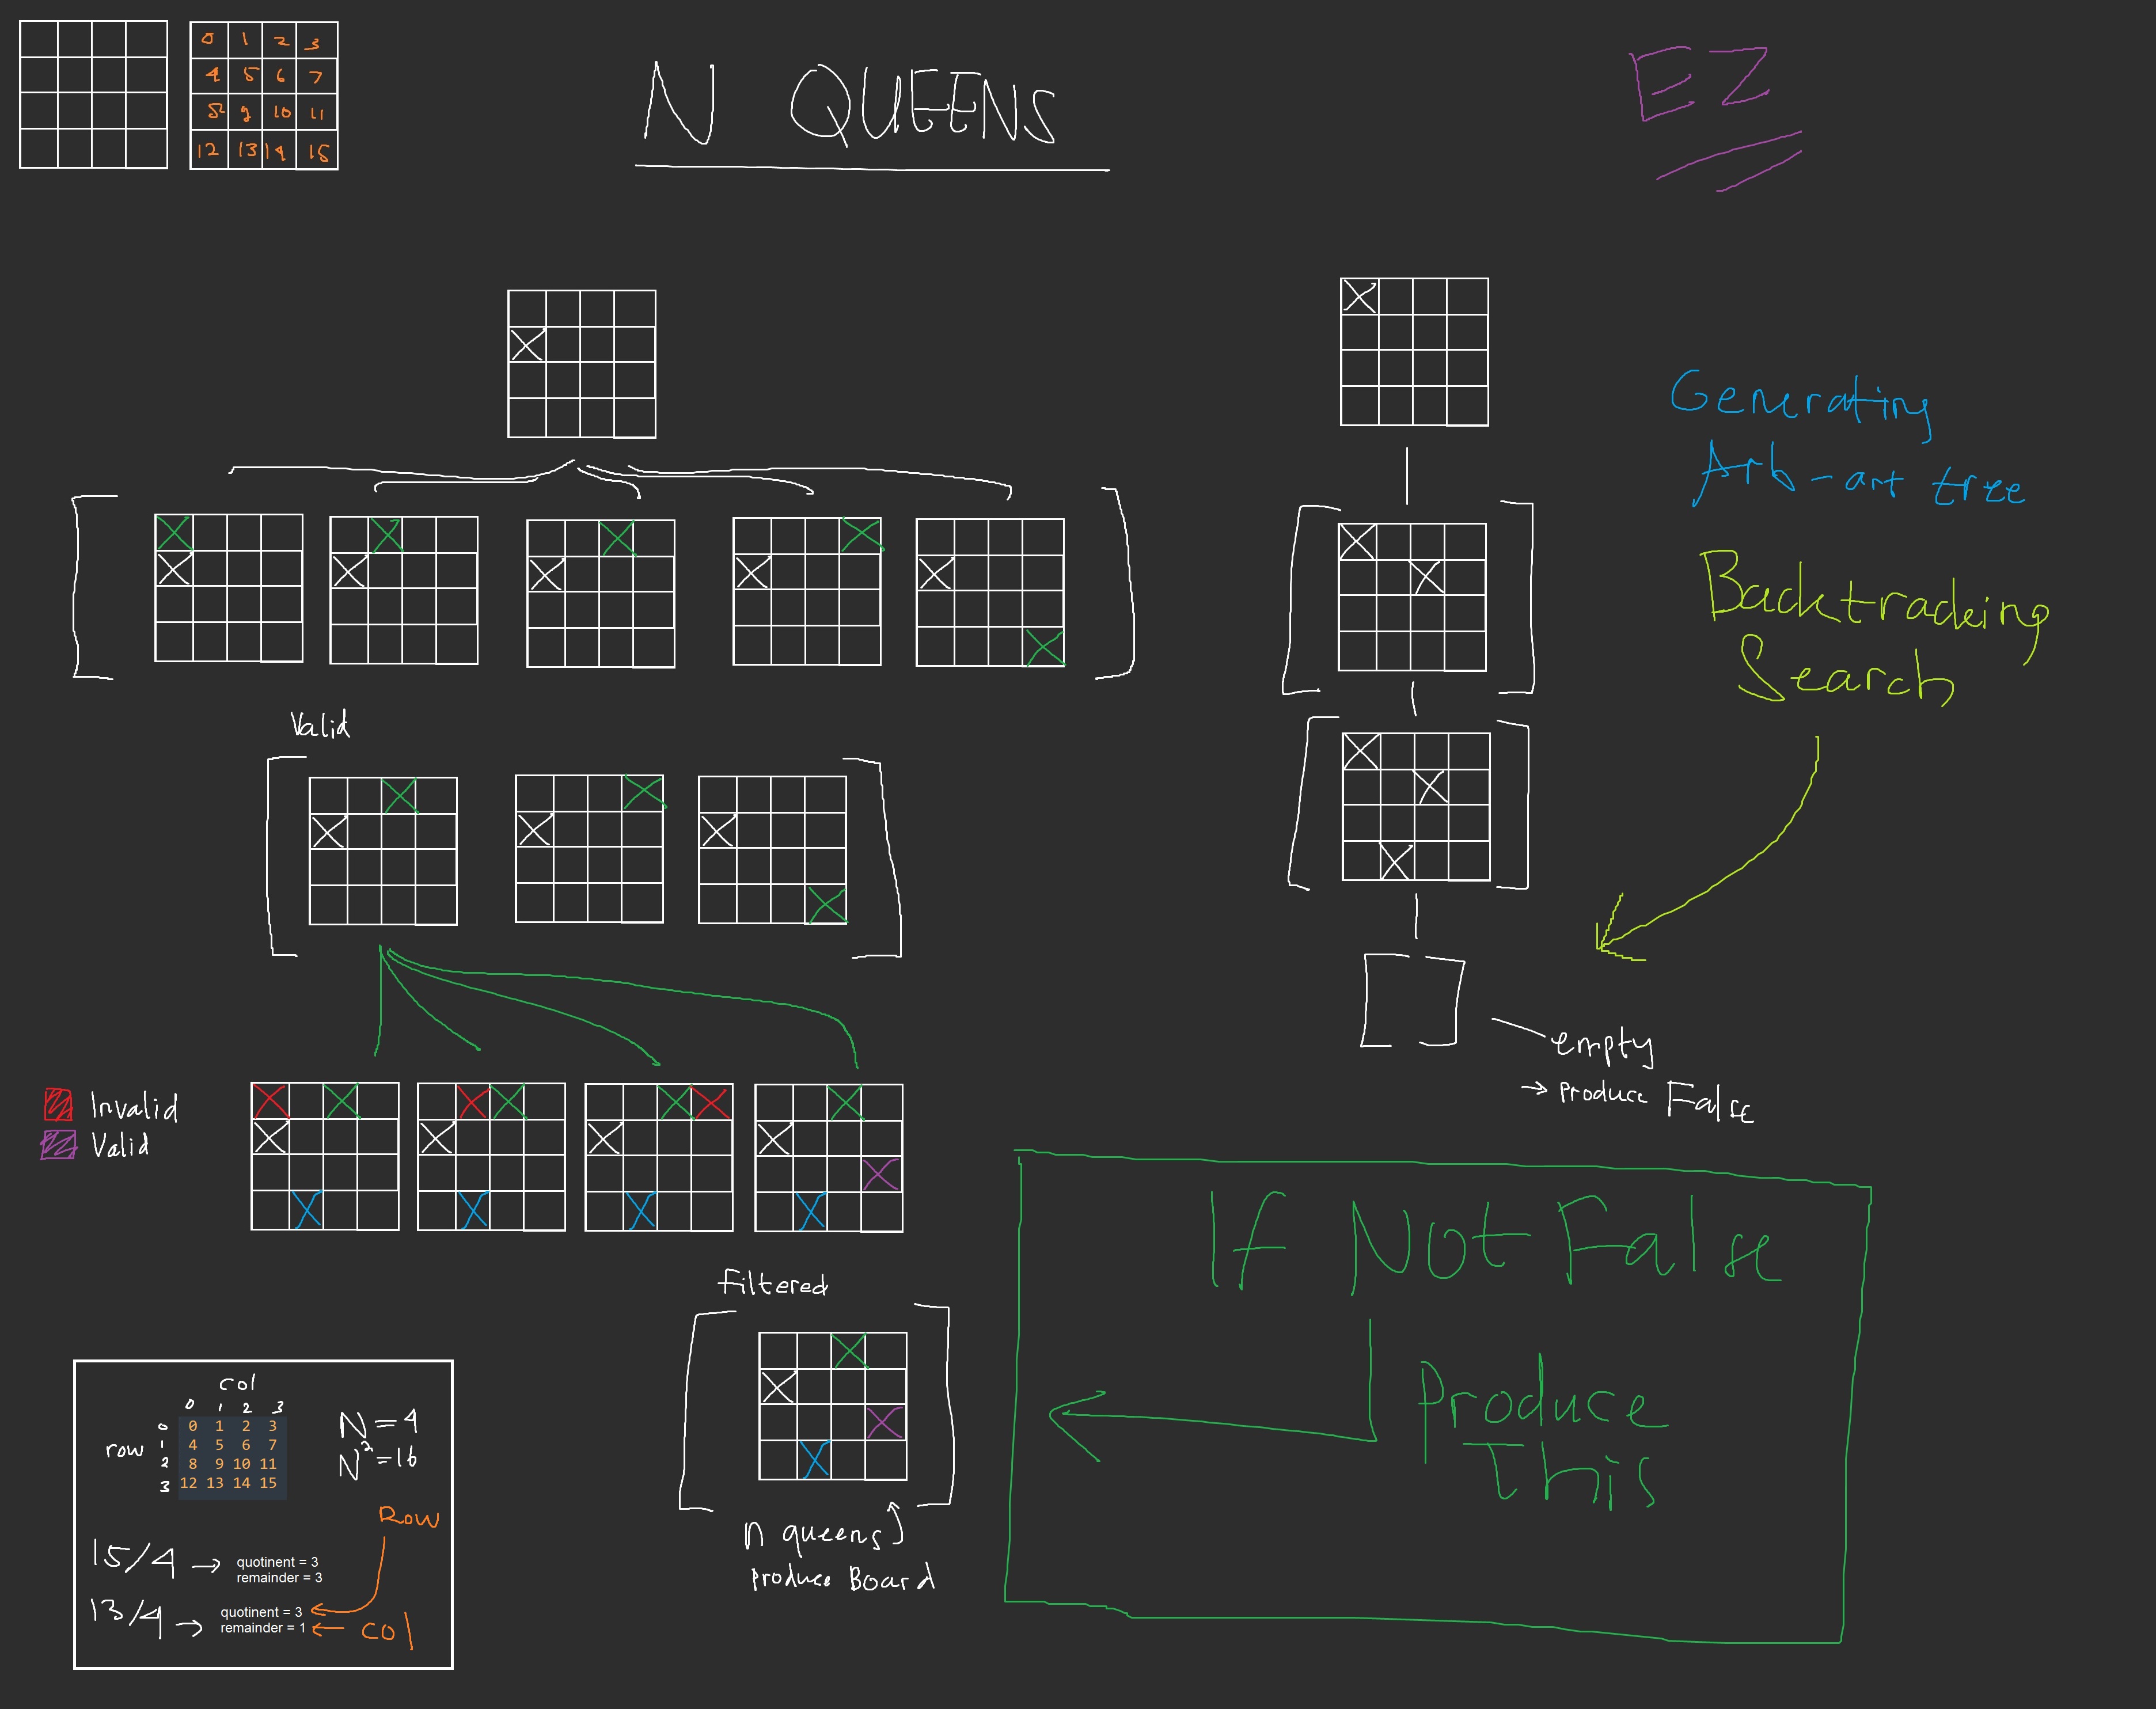 0 1 2 3
4 5 6 7
8 9 10 11
12 13 14 15
N QUEENS
EZ
Generating
Arb-art tree
Backtracking
Search
Valid
empty
→ produce False
Invalid
Valid
Filtered
n queens
produce Board
If Not False
Produce
This
col
0 1 2 3
row
0 0 1 2 3
1 4 5 6 7
2 8 9 10 11
3 12 13 14 15
N=4
N²=16
Row
15/4 → quotinent = 3
remainder = 3
13/4 → quotinent = 3
remainder = 1
col